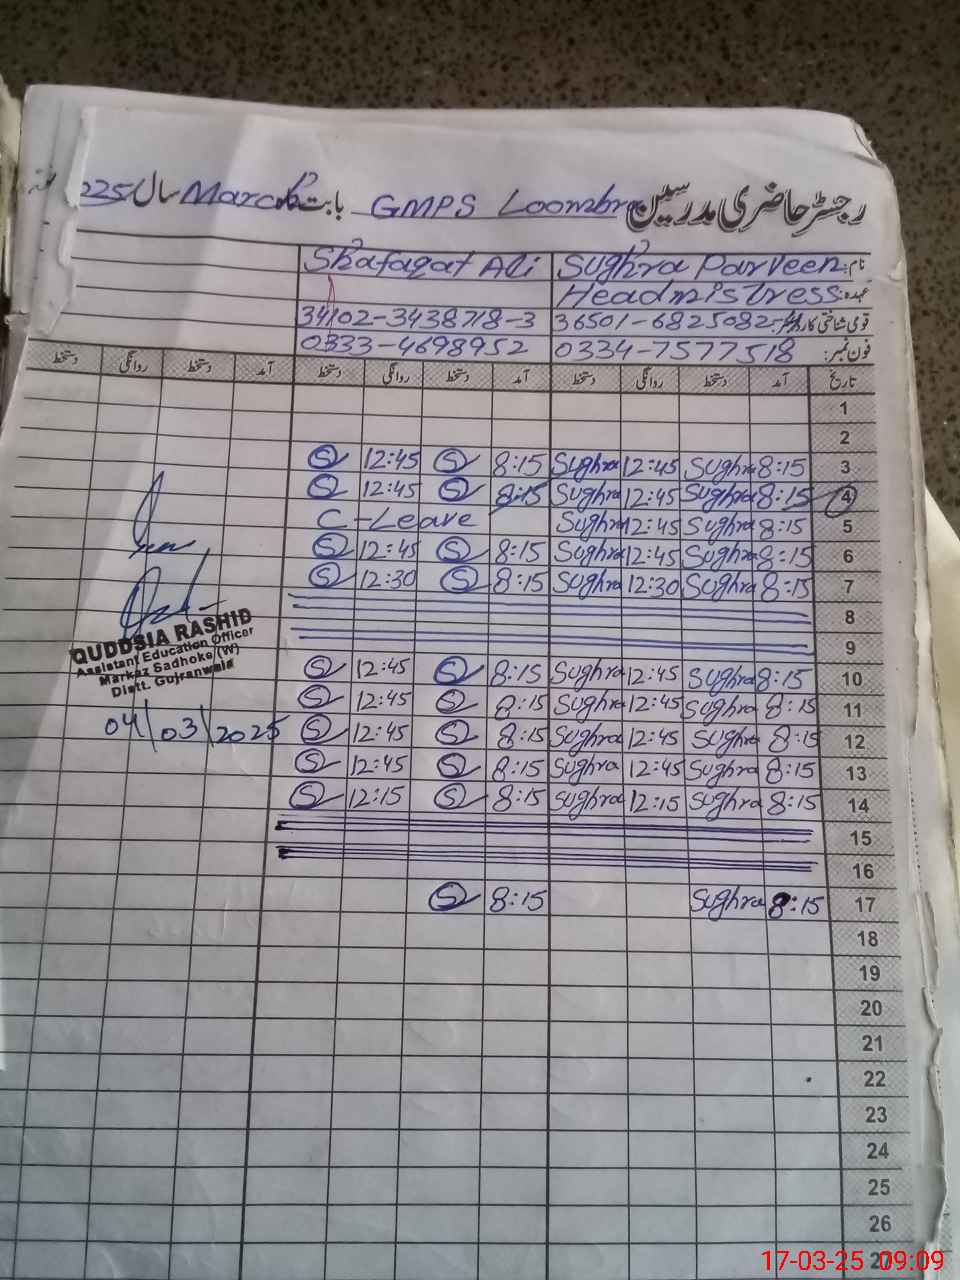 رجسٹر حاضری مدرسین GMPS Loombra بابت ماہ March سال 225
نام: Sughra Parveen Shafaqat Ali
عہدہ: Headmistress
قومی شناختی کارڈ نمبر: 36501-6825082-4 34102-3438718-3
فون نمبر: 0334-7577518 0333-4698952
تاریخ آمد دستخط روانگی دستخط آمد دستخط روانگی دستخط آمد دستخط روانگی دستخط
1
2
3 8:15 Sughra 12:45 Sughra 8:15 S 12:45 S
4 8:15 Sughra 12:45 Sughra 8:15 S 12:45 S
5 8:15 Sughra 12:45 Sughra C-Leave
6 8:15 Sughra 12:45 Sughra 8:15 S 12:45 S
7 8:15 Sughra 12:30 Sughra 8:15 S 12:30 S
8
9
QUDDSIA RASHID
Assistant Education Officer
Markaz Sadhoke (W)
Distt. Gujranwala
04/03/2025
10 8:15 Sughra 12:45 Sughra 8:15 S 12:45 S
11 8:15 Sughra 12:45 Sughra 8:15 S 12:45 S
12 8:15 Sughra 12:45 Sughra 8:15 S 12:45 S
13 8:15 Sughra 12:45 Sughra 8:15 S 12:45 S
14 8:15 Sughra 12:15 Sughra 8:15 S 12:15 S
15
16
17 8:15 Sughra 8:15 S
18
19
20
21
22
23
24
25
26
27
17-03-25 09:09